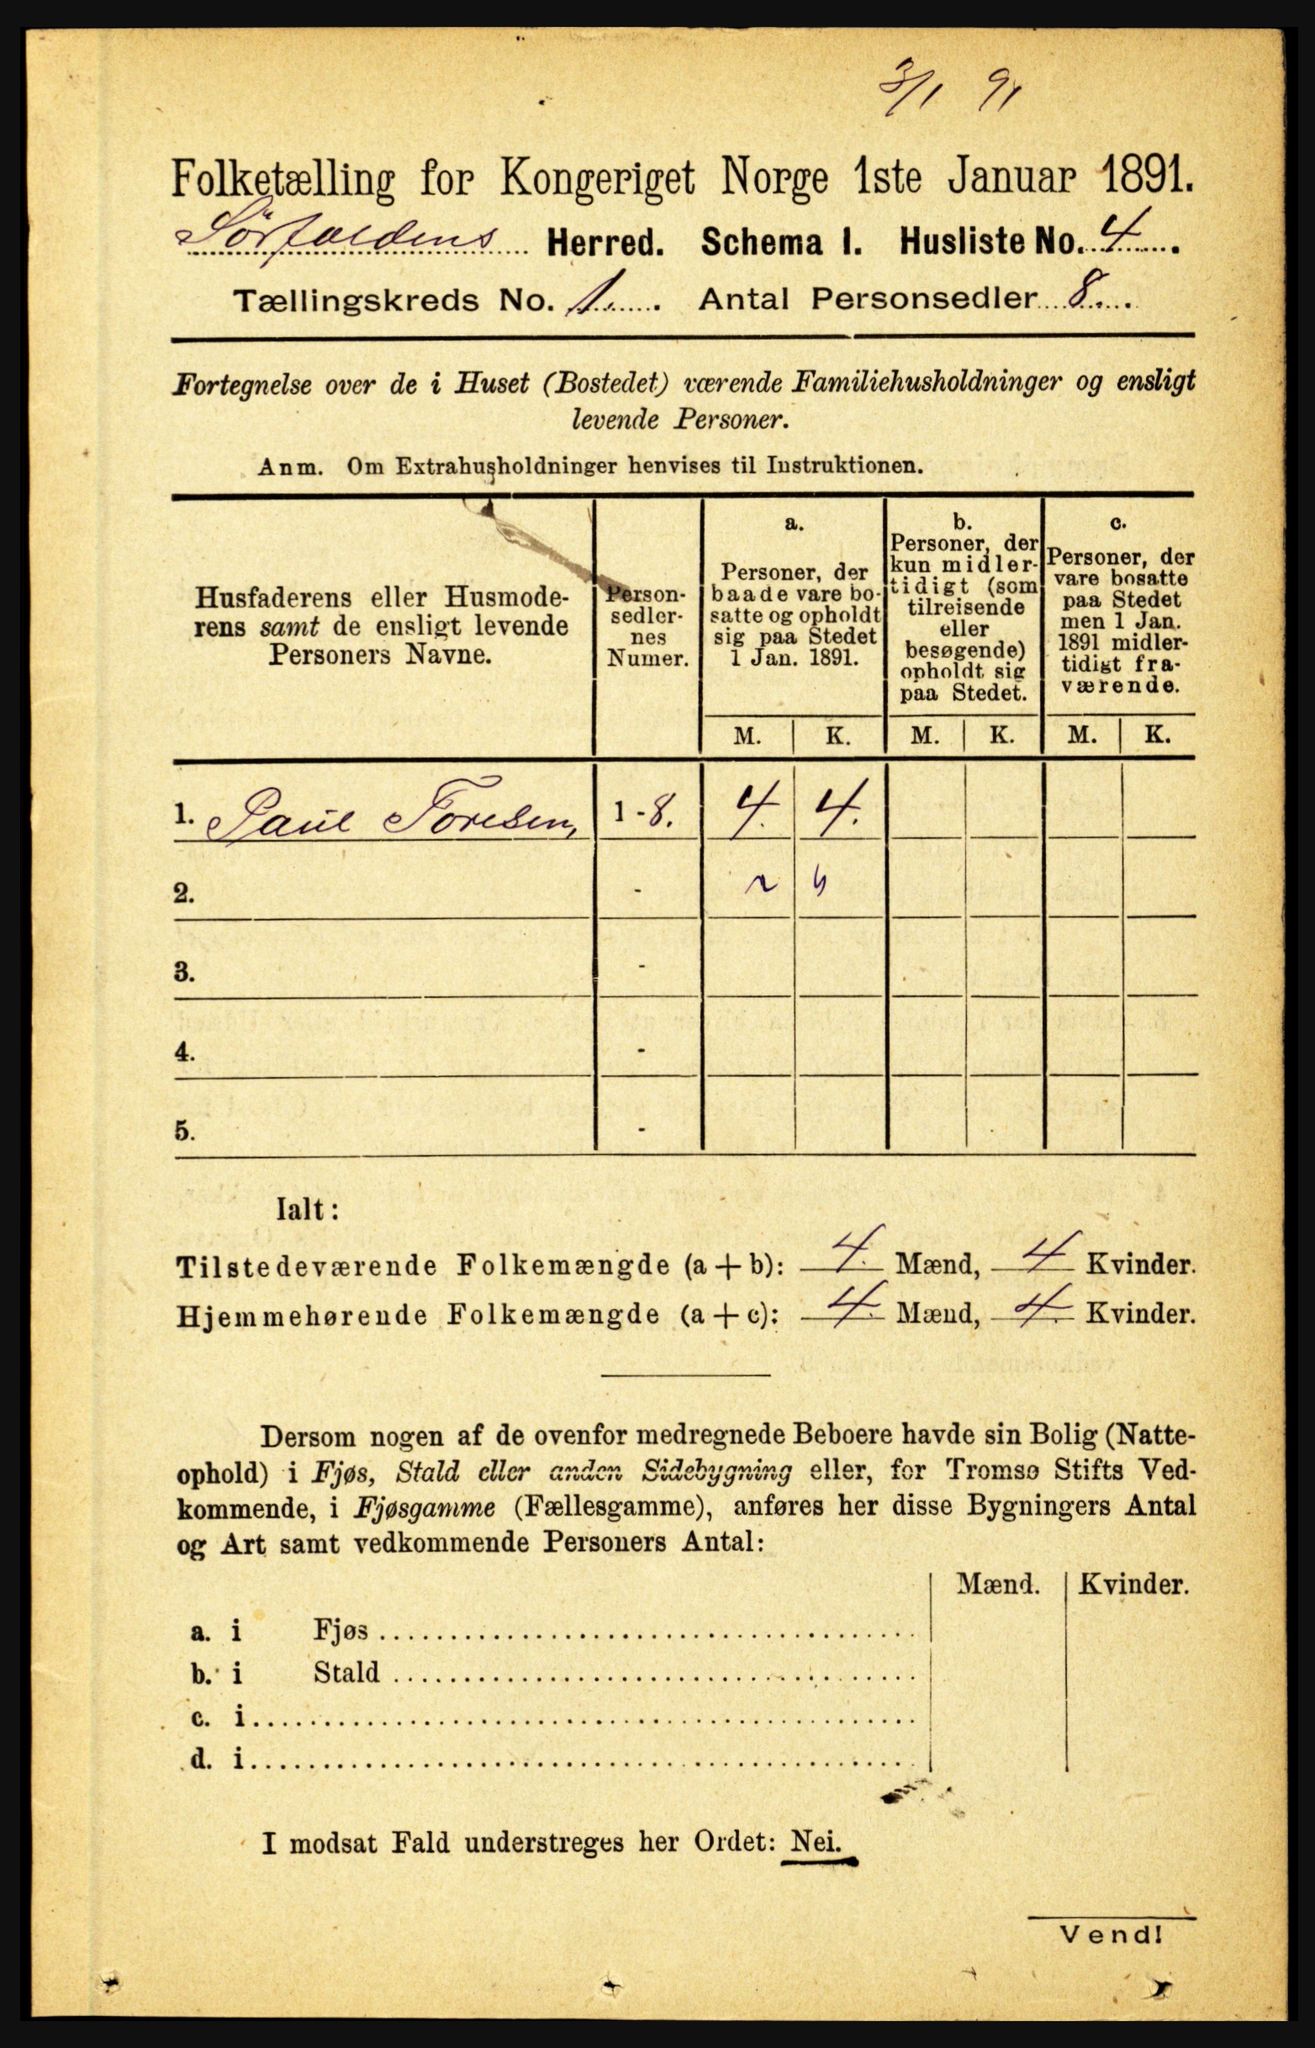 3/1 91
Folketælling for Kongeriget Norge 1ste Januar 1891.
Sørfoldens Herred. Schema I. Husliste No. 4.
Tællingskreds No. 1. Antal Personsedler 8.
Fortegnelse over de i Huset (Bostedet) værende Familiehusholdninger og ensligt
levende Personer.
Anm. Om Extrahusholdninger henvises til Instruktionen.
Husfaderens eller Husmode-
rens samt de ensligt levende
Personers Navne.
Person-
sedler-
nes
Numer.
a.
Personer, der
baade vare bo-
satte og opholdt
sig paa Stedet
1 Jan. 1891.
b.
Personer, der
kun midler-
tidigt (som
tilreisende
eller
besøgende)
opholdt sig
paa Stedet.
c.
Personer, der
vare bosatte
paa Stedet
men 1 Jan.
1891 midler-
tidigt fra-
værende.
M. K. M. K. M. K.
1. Paul Toresen, 1-8. 4. 4.
2. -
3. -
4. -
5. -
Ialt:
Tilstedeværende Folkemængde (a+b): 4. Mænd, 4 Kvinder.
Hjemmehørende Folkemængde (a+c): 4. Mænd, 4. Kvinder.
Dersom nogen af de ovenfor medregnede Beboere havde sin Bolig (Natte-
ophold) i Fjøs, Stald eller anden Sidebygning eller, for Tromsø Stifts Ved-
kommende, i Fjøsgamme (Fællesgamme), anføres her disse Bygningers Antal
og Art samt vedkommende Personers Antal:
Mænd. Kvinder.
a. i Fjøs
b. i Stald
c. i
d. i
I modsat Fald understreges her Ordet: Nei.
Vend!